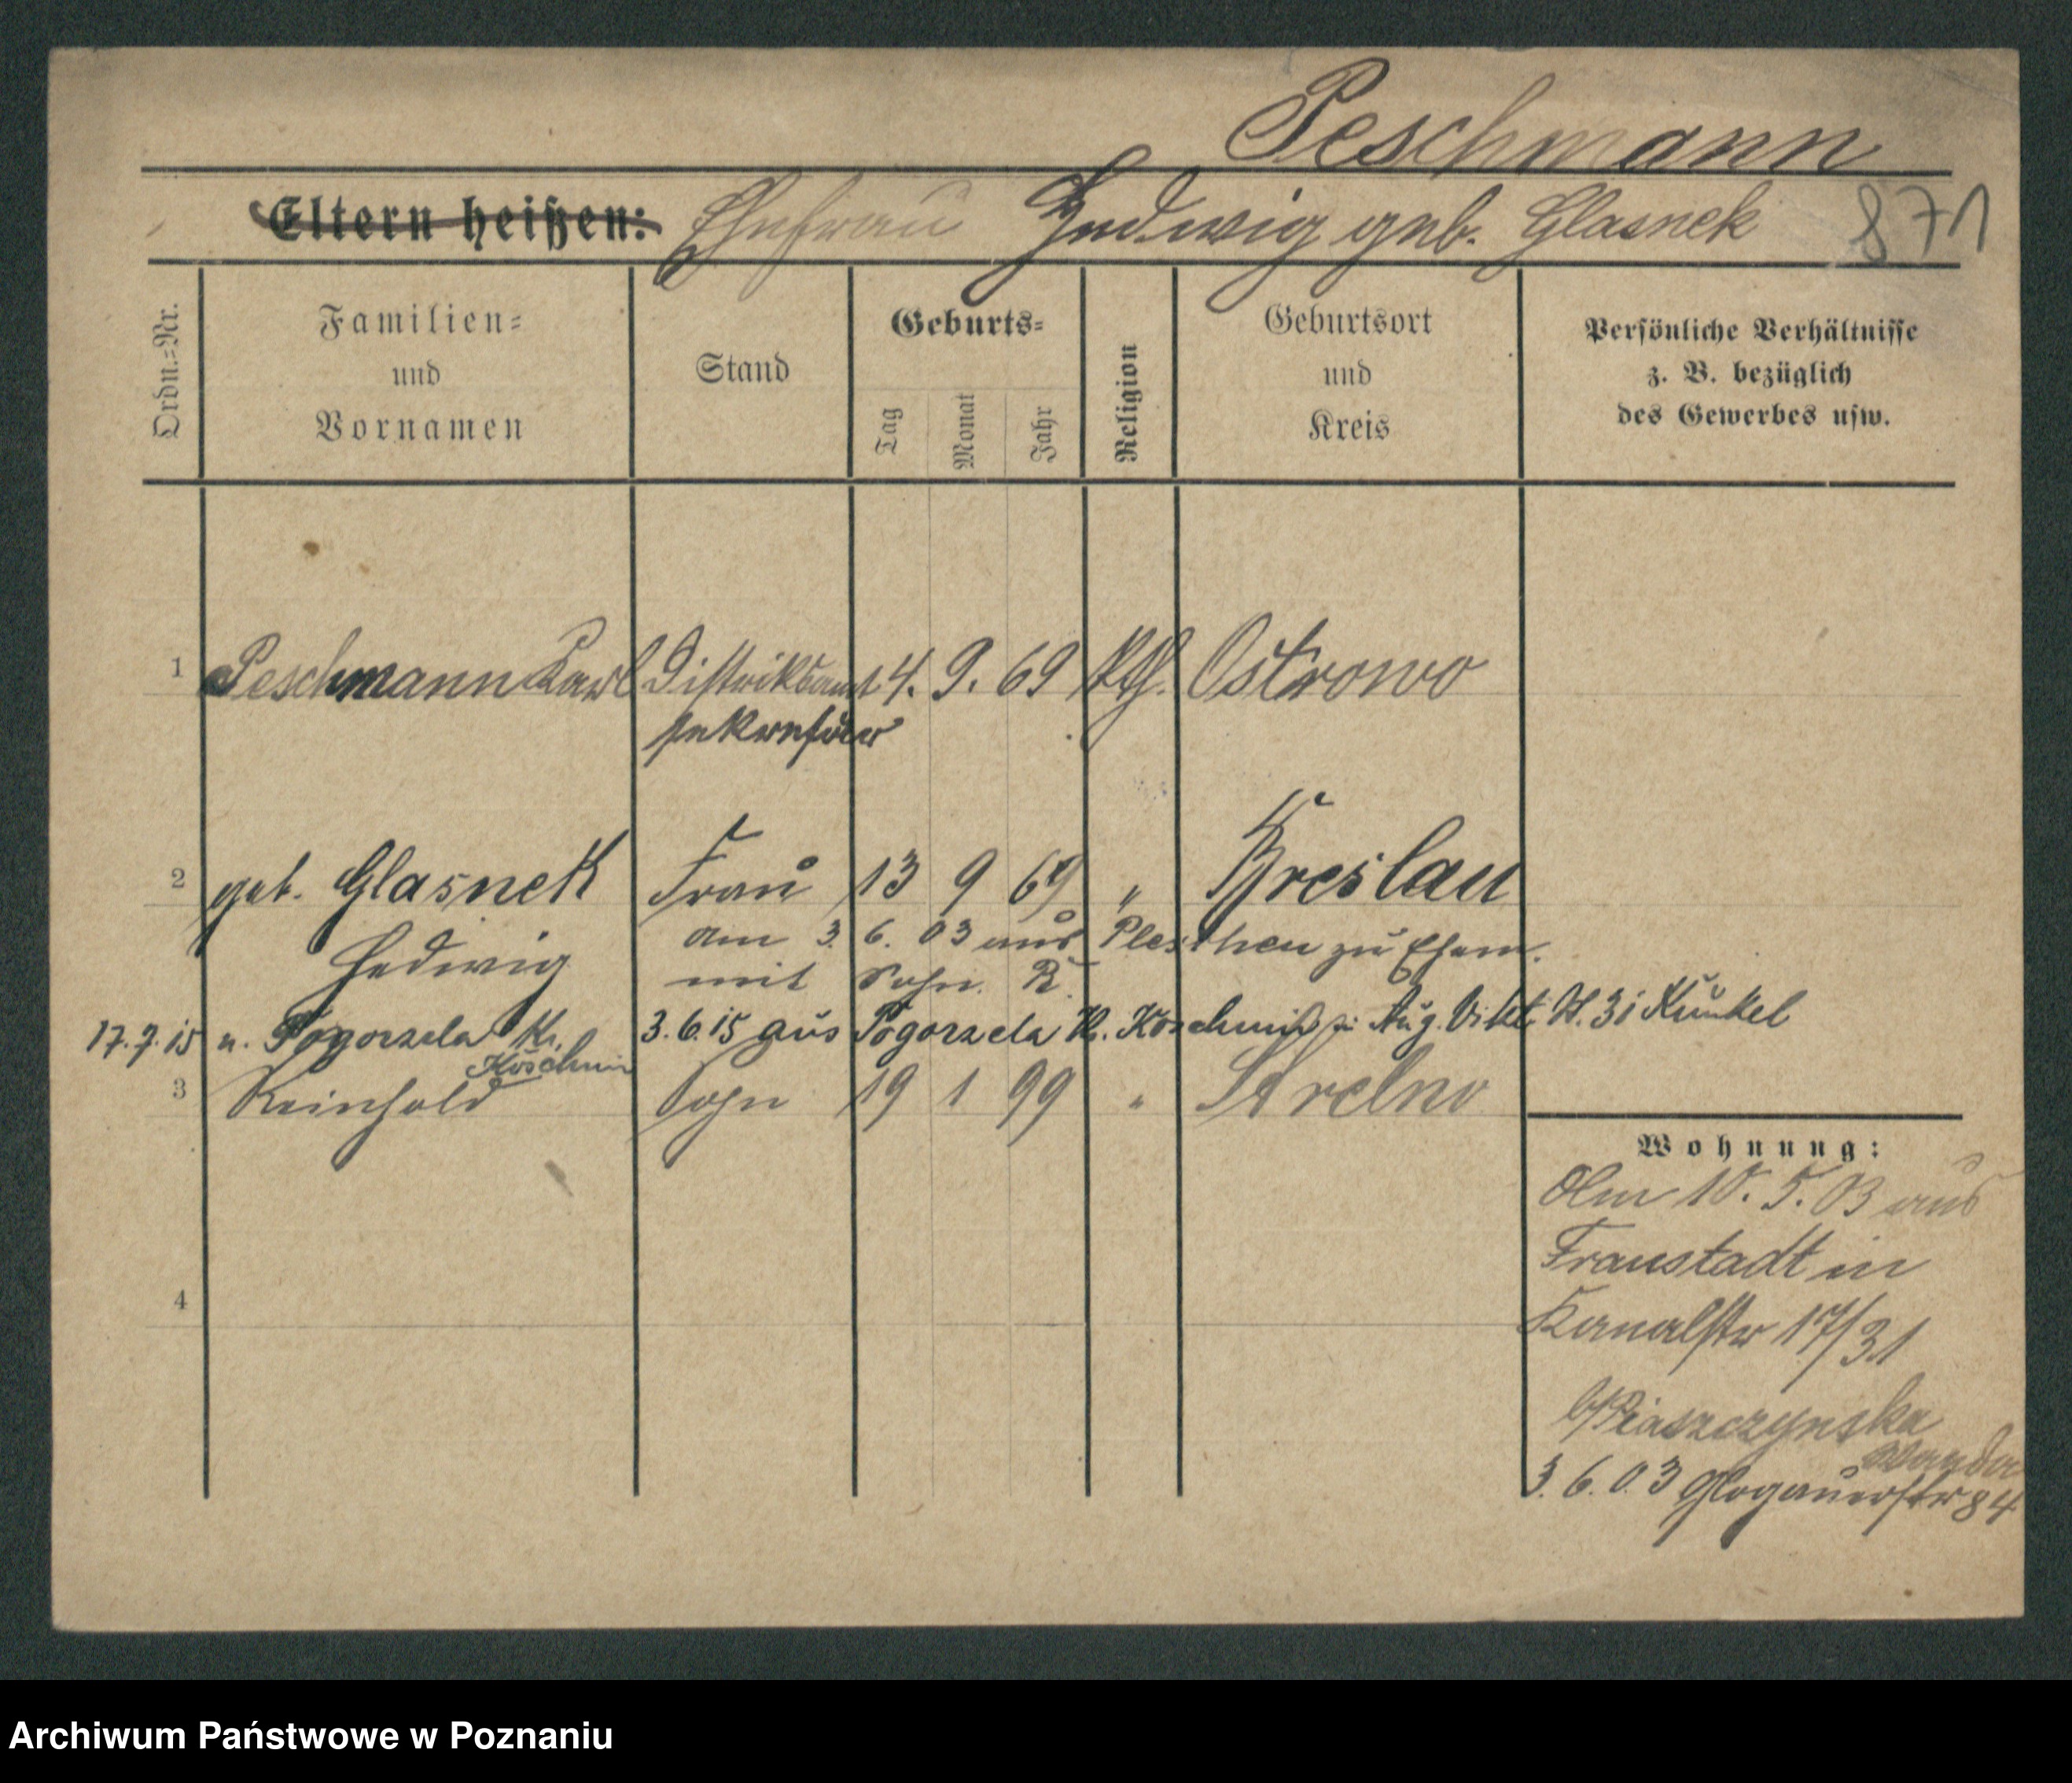 Peschmann
Eltern heißen: Ehefrau Hedwig geb. Glasnek 871
Ordn.=Nr.
Familien=
und
Vornamen
Stand
Geburts=
Tag
Monat
Jahr
Religion
Geburtsort
und
Kreis
Persönliche Verhältnisse
z. B. bezüglich
des Gewerbes usw.
1 Peschmann Karl Distriktsamt 4. 9. 69 Kth. Ostrowo
sekretär
2 geb. Glasnek Frau 13 9 69 " Breslau
Hedwig
am 3. 6. 03 aus Pleschen zu Ehem.
mit Sohn R.
17.7.15 n. Pogorzela Kr. Koschmin
3.6.15 aus Pogorzela Kr. Koschmin z. Aug. Vikt. St. 31 Kunkel
3 Reinhold Sohn 19 1 99 " Strelno
4
Wohnung:
Am 10. 5. 03 aus
Fraustadt in
Kanalstr 17/31
b/Piaszczynska
Wanda
3. 6. 03 Glogauerstr 84
Archiwum Państwowe w Poznaniu